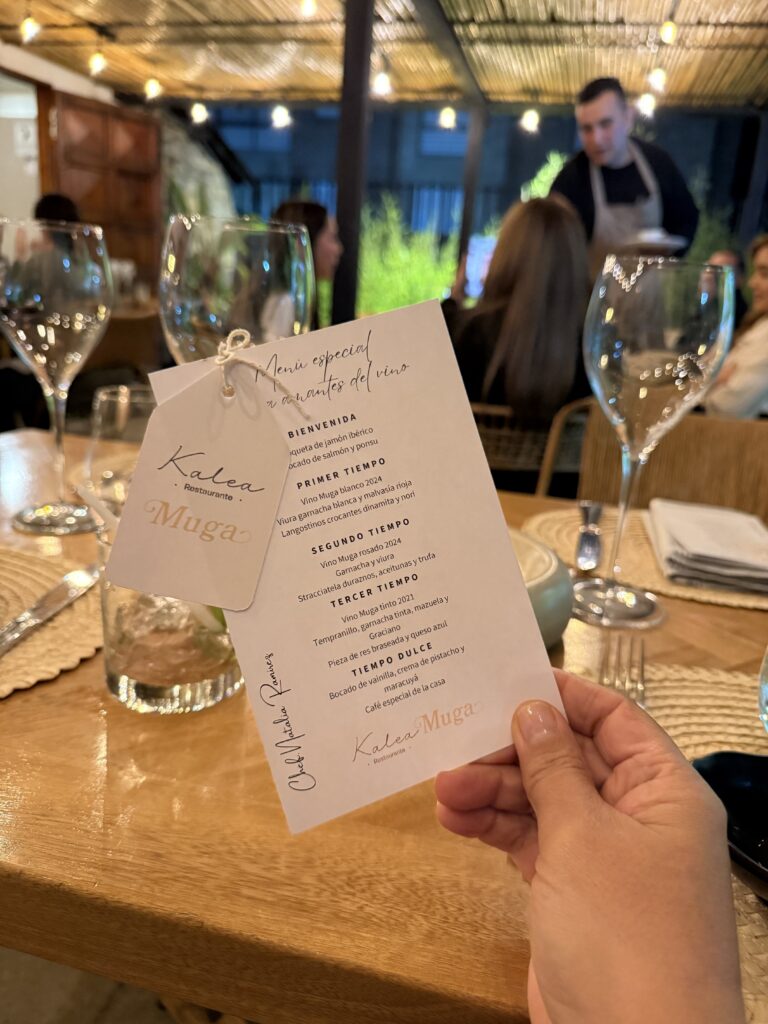 Kalea
· Restaurante ·
Muga
Menú especial
amantes del vino
BIENVENIDA
de jamón ibérico
de salmón y ponsu
PRIMER TIEMPO
Vino Muga blanco 2024
Viura garnacha blanca y malvasía rioja
Langostinos crocantes dinamita y nori
SEGUNDO TIEMPO
Vino Muga rosado 2024
Garnacha y viura
Stracciatela duraznos, aceitunas y trufa
TERCER TIEMPO
Vino Muga tinto 2021
Tempranillo, garnacha tinta, mazuela y
Graciano
Pieza de res braseada y queso azul
TIEMPO DULCE
Bocado de vainilla, crema de pistacho y
maracuyá
Café especial de la casa
Kalea Muga
· Restaurante ·
Chef Natalia Ramires